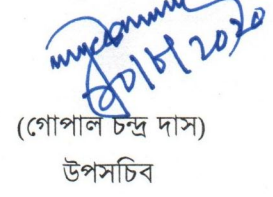 (গোপাল চন্দ্র দাস)
উপসচিব